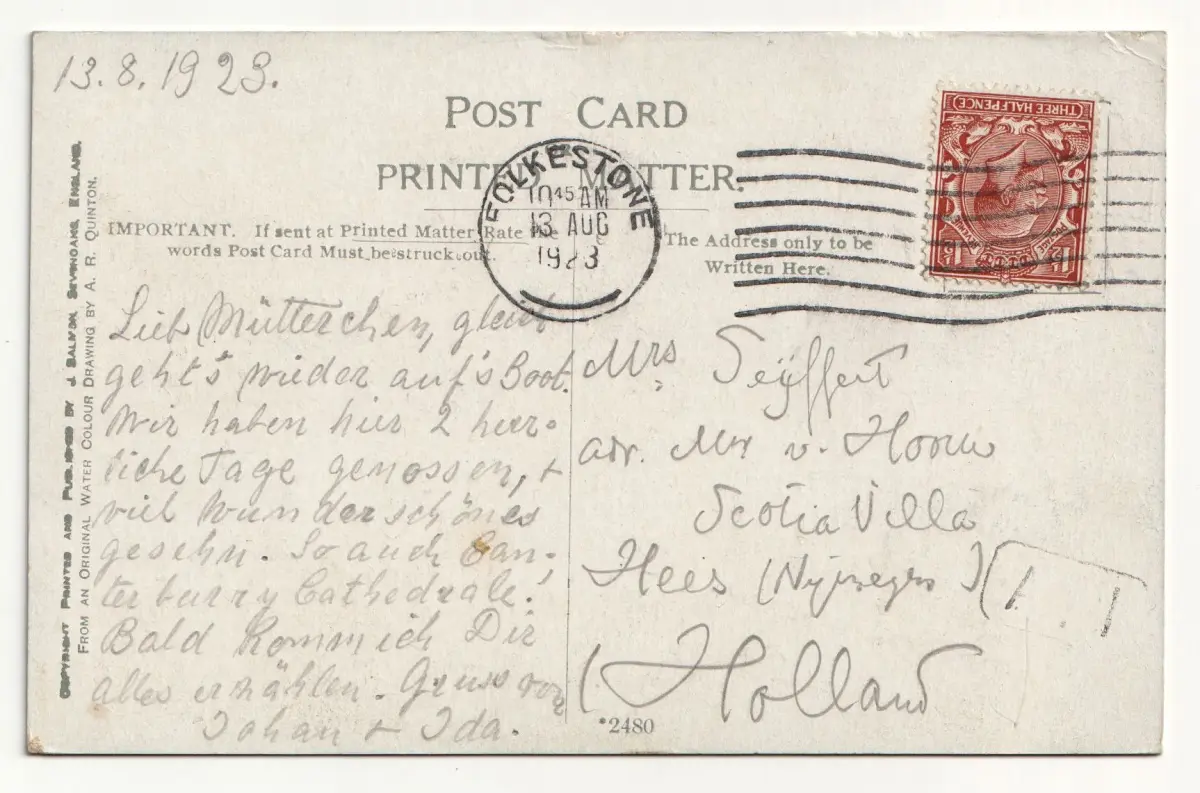 13.8.1923.
POST CARD
PRINTED MATTER.
IMPORTANT. If sent at Printed Matter Rate
words Post Card Must be struck out.
The Address only to be
Written Here.
FOLKESTONE
10 45 AM
13 AUG
1923
(THREE HALFPENCE)
COPYRIGHT PRINTED AND PUBLISHED BY J. SALMON, SEVENOAKS, ENGLAND.
FROM AN ORIGINAL WATER COLOUR DRAWING BY A. R. QUINTON.
Lieb Mütterchen, gleich
geht's wieder auf's Boot.
Wir haben hier 2 herr-
liche Tage genossen, +
viel wunderschönes
gesehn. So auch Can-
terburry Cathedrale.
Bald komm ich Dir
alles erzählen. Gruss von
Johan + Ida.
Mrs Seÿffert
adr. Mr v. Hoorn
Scotia Villa
Hees (Nÿmegen)
Holland
T
*2480